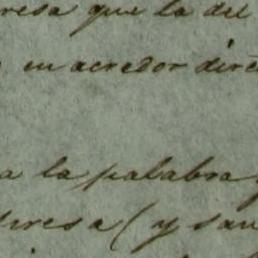 resa que la del
en acredor direc
a la palabra
diresa (y san